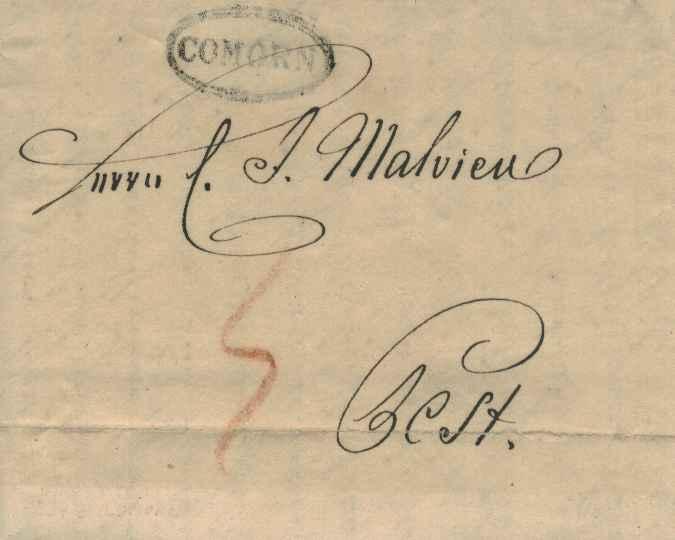 COMORN
Herrn C. J. Malvieu
3
Pest.